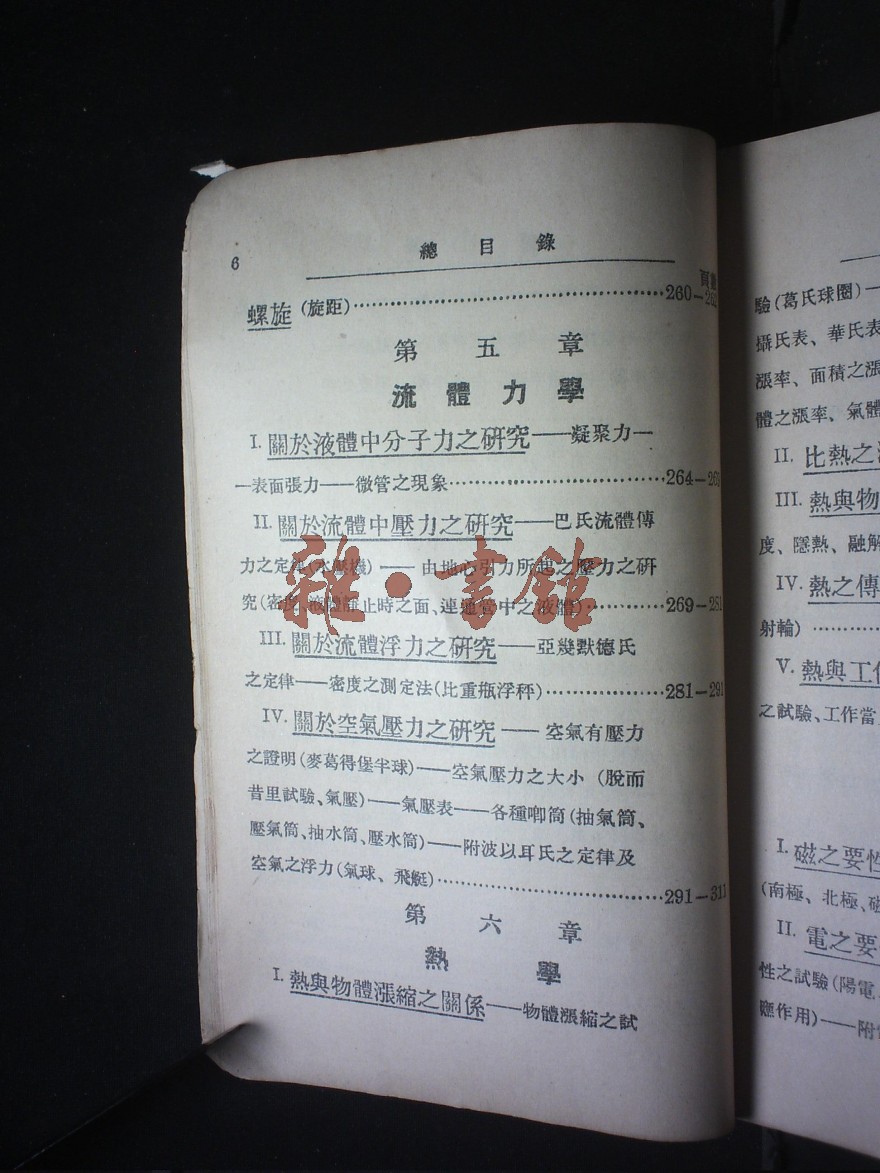 6
總目錄
頁數
螺旋(旋距)……260—262
第五章
流體力學
I. 關於液體中分子力之研究——凝聚力—
—表面張力——微管之現象……264—26
II. 關於流體中壓力之研究——巴氏流體傳
力之定律(水壓機)——由地心引力所起之壓力之研
究(密度、液體靜止時之面、連通管中之液體)……269—281
III. 關於流體浮力之研究——亞幾默德氏
之定律——密度之測定法(比重瓶浮秤)……281—291
IV. 關於空氣壓力之研究——空氣有壓力
之證明(麥葛得堡半球)——空氣壓力之大小(脫而
昔里試驗、氣壓)——氣壓表——各種唧筒(抽氣筒、
壓氣筒、抽水筒、壓水筒)——附波以耳氏之定律及
空氣之浮力(氣球、飛艇)……291—311
第六章
熱學
I. 熱與物體漲縮之關係——物體漲縮之試
驗(葛氏球圈)—
攝氏表、華氏表
漲率、面積之漲
體之漲率、氣體
II. 比熱之
III. 熱與物
度、隱熱、融解
IV. 熱之傳
射輪)……
V. 熱與工作
之試驗、工作當
I. 磁之要性
(南極、北極、磁
II. 電之要
性之試驗(陽電、
應作用)——附
雜·書館